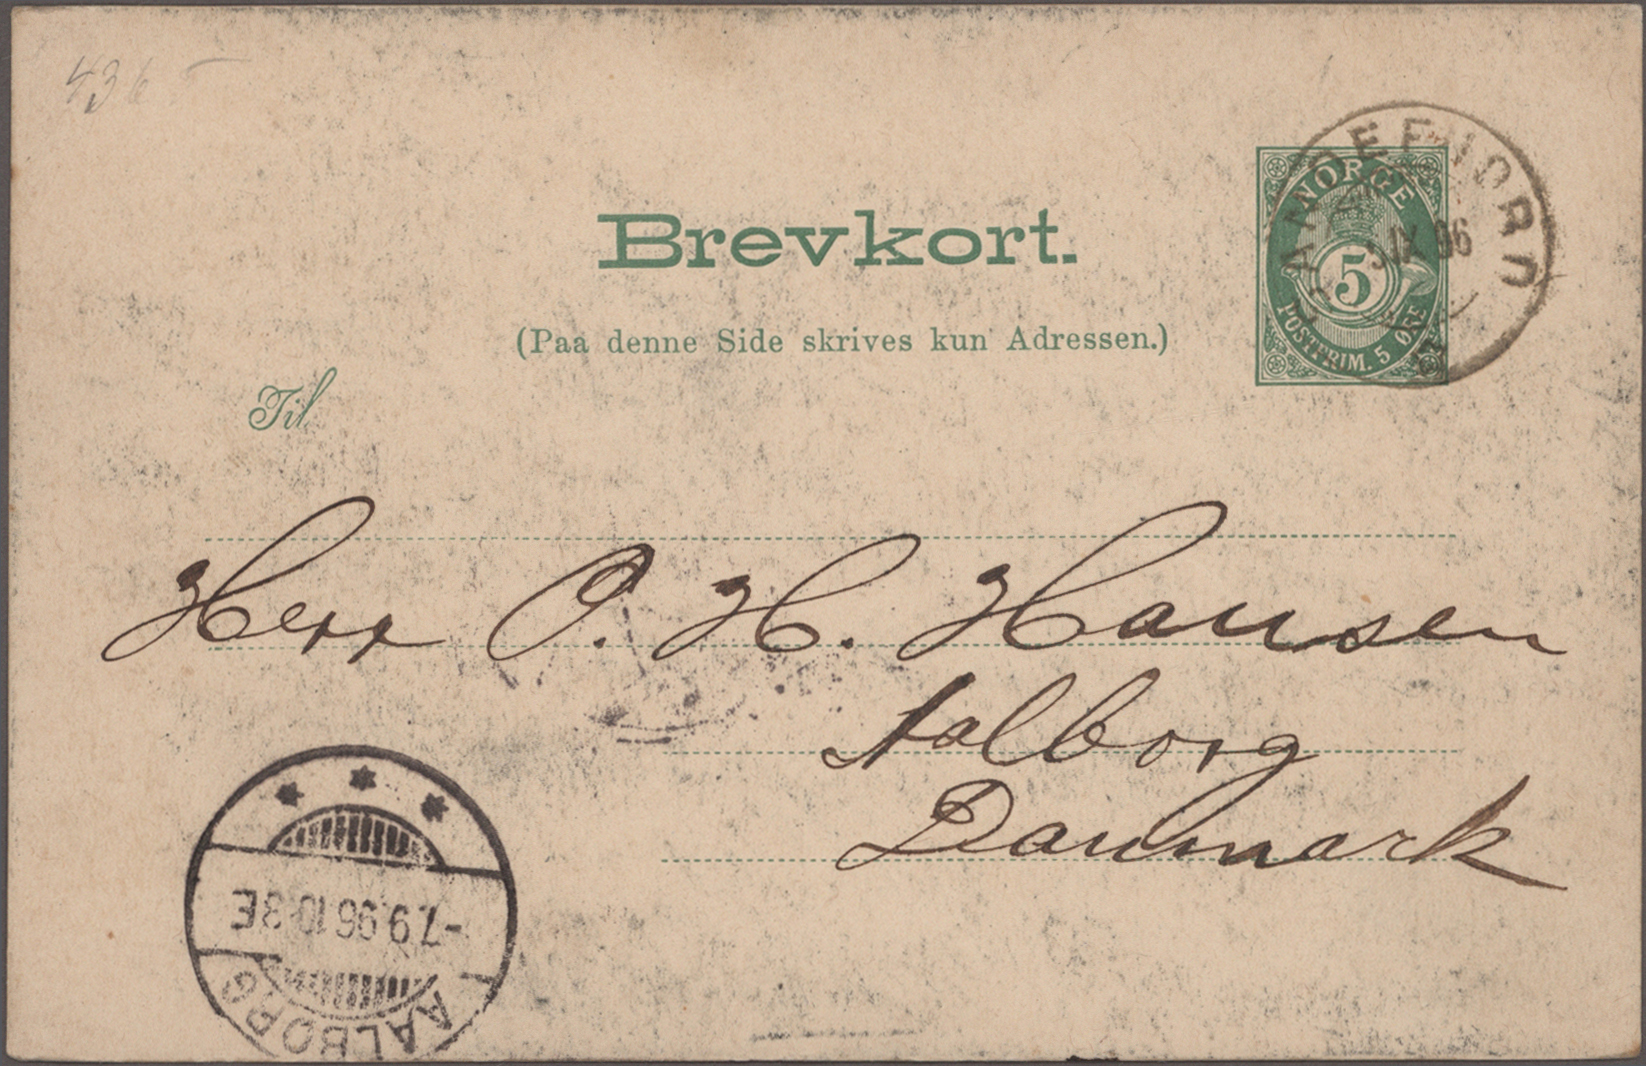 436
Brevkort.
(Paa denne Side skrives kun Adressen.)
NORGE
5
POSTFRIM. 5 ØRE
SANDEFJORD
IX 96
Til
Herr O. H. Hansen
Aalborg
Danmark
AALBORG
-7.9.96 10-3E